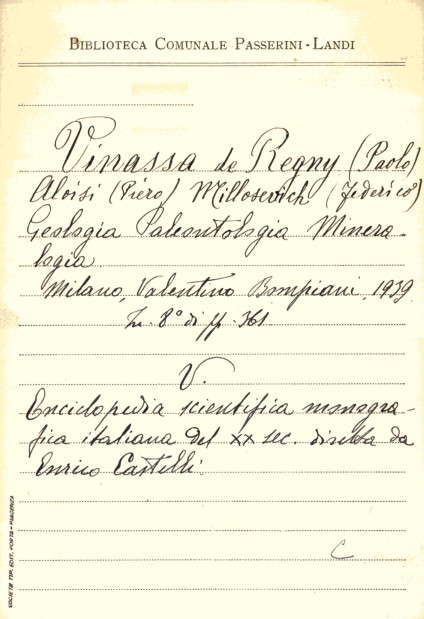 BIBLIOTECA COMUNALE PASSERINI-LANDI
Vinassa de Regny (Paolo)
Aloisi (Piero) Millosevich (Federico)
Geologia Paleontologia Minera-
logia.
Milano, Valentino Bompiani, 1939
In. 8° di pp. 361
V.
Enciclopedia scientifica monogra-
fica italiana del XX sec. diretta da
Enrico Castelli.
C
SOCIETÀ TIP. EDIT. PORTA - PIACENZA